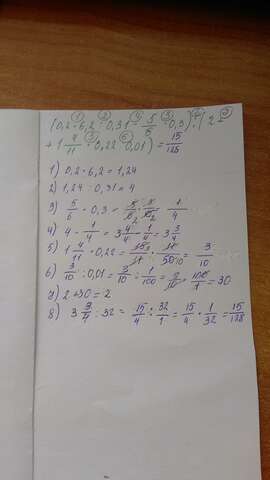 (0,2 · 6,2 : 0,31 - 5/6 · 0,3) : (2 +
+ 1 4/11 · 0,22 : 0,01) = 15/128
1) 0,2 · 6,2 = 1,24
2) 1,24 : 0,31 = 4
3) 5/6 · 0,3 = 5/6 · 3/10 = 1/4
4) 4 - 1/4 = 3 4/4 - 1/4 = 3 3/4
5) 1 4/11 · 0,22 = 15/11 · 11/50 = 3/10
6) 3/10 : 0,01 = 3/10 : 1/100 = 3/10 · 100/1 = 30
7) 2 + 30 = 2
8) 3 3/4 : 32 = 15/4 : 32/1 = 15/4 · 1/32 = 15/128